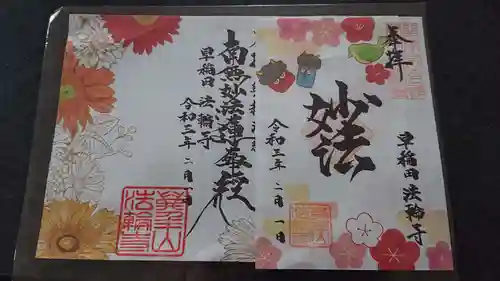 奉拝
妙法
早稲田 法輪寺
令和三年 二月 一日
南無妙法蓮華経
早稲田 法輪寺
令和三年 二月一日